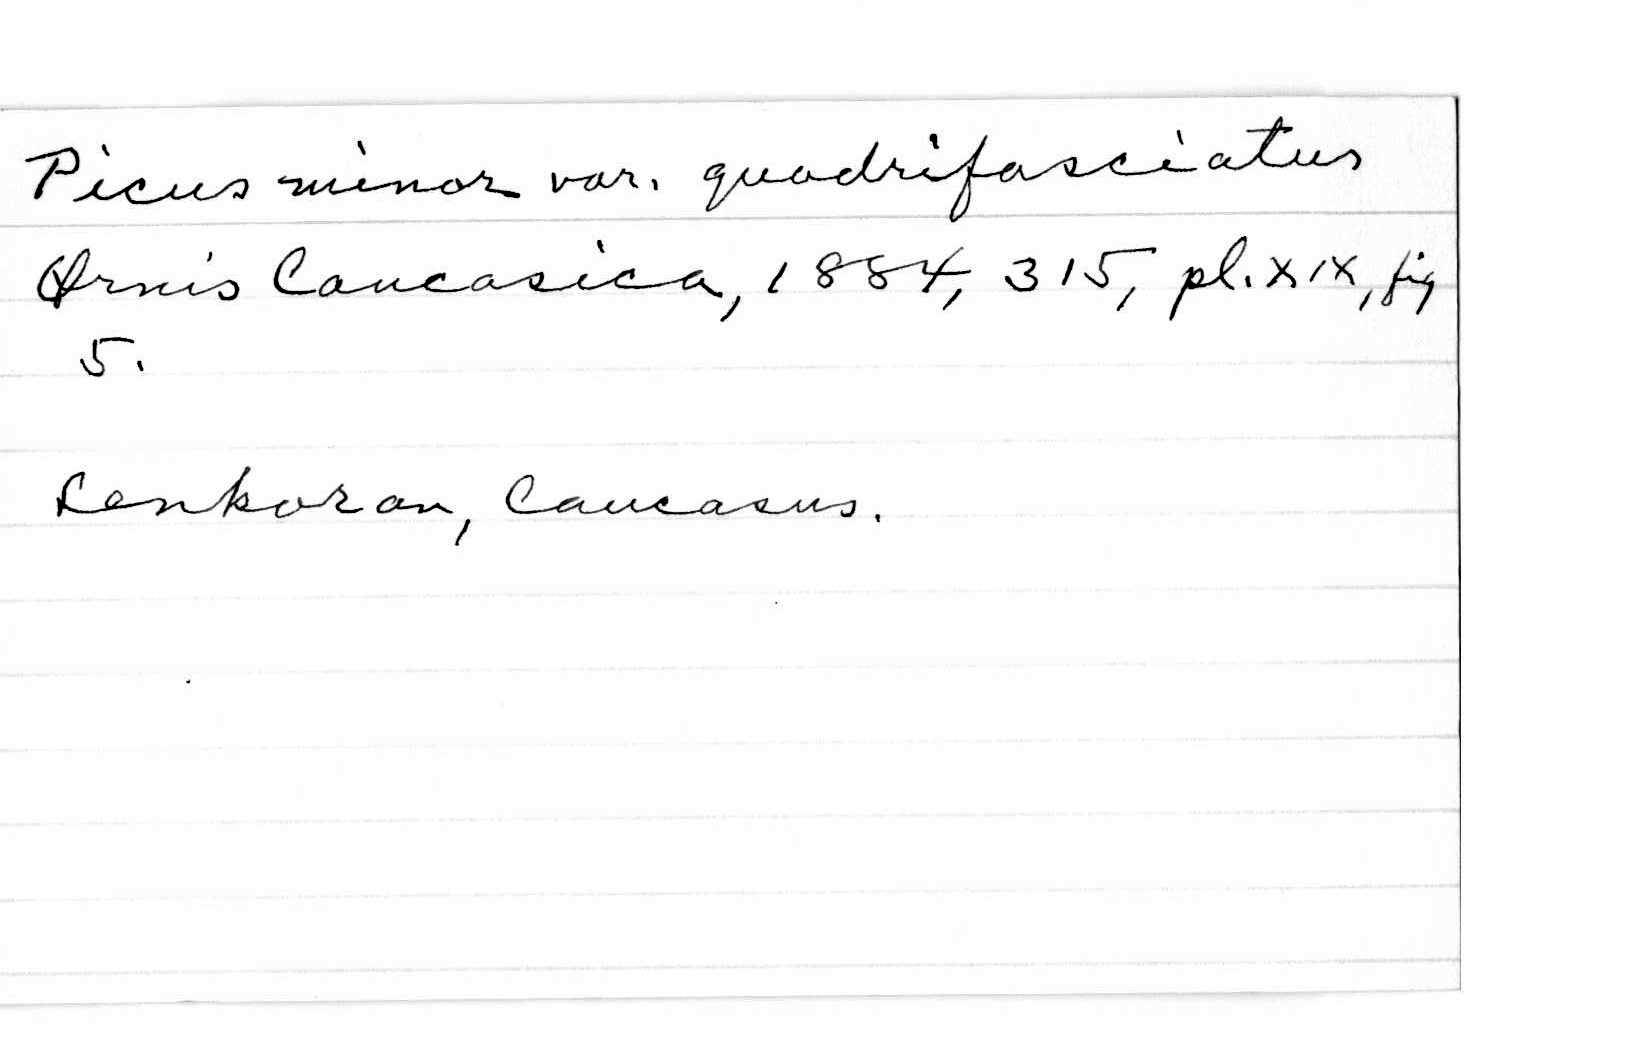 Picus minor var. quadrifasciatus
Ornis Caucasica, 1884, 315, pl. XIX, fig
5.
Lenkoran, Caucasus.